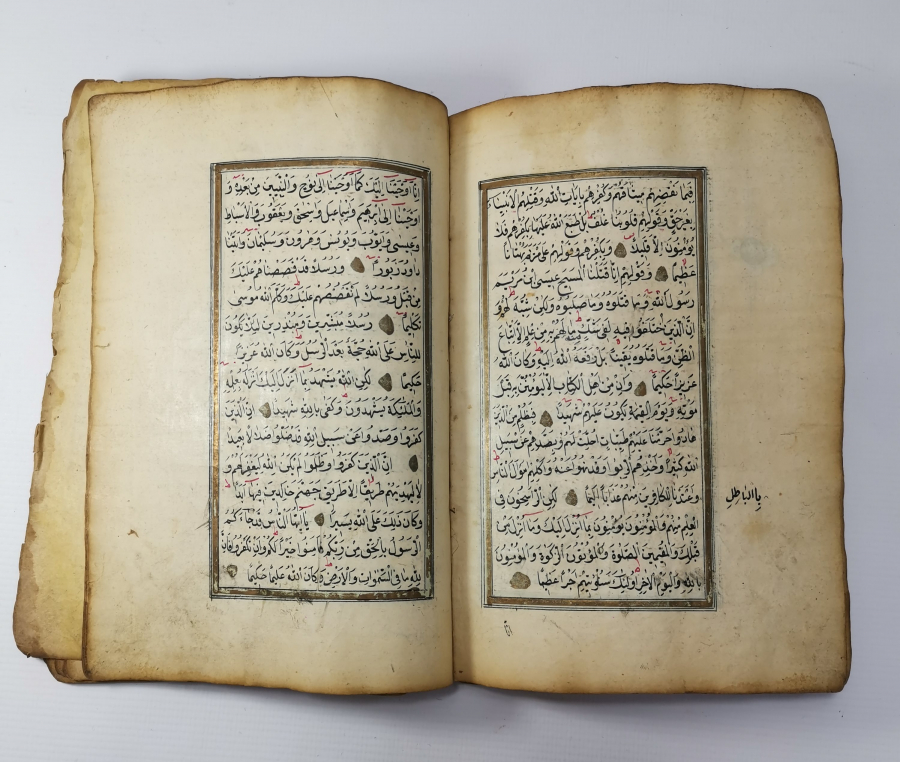 فبما نقضهم ميثاقهم وكفرهم بايات الله وقتلهم الانبياء
بغير حق وقولهم قلوبنا غلف بل طبع الله عليها بكفرهم فلا
يؤمنون الا قليلا وبكفرهم وقولهم على مريم بهتانا
عظيما وقولهم انا قتلنا المسيح عيسى ابن مريم
رسول الله وما قتلوه وما صلبوه ولكن شبه لهم و
ان الذين اختلفوا فيه لفي شك منه ما لهم به من علم الا اتباع
الظن وما قتلوه يقينا بل رفعه الله اليه وكان الله
عزيزا حكيما وان من اهل الكتاب الا ليؤمنن به قبل
موته ويوم القيمة يكون عليهم شهيدا فبظلم من الذين
هادوا حرمنا عليهم طيبات احلت لهم وبصدهم عن سبيل
الله كثيرا واخذهم الربوا وقد نهوا عنه واكلهم اموال الناس
باالباطل
واعتدنا للكافرين منهم عذابا اليما لكن الراسخون في
العلم منهم والمؤمنون يؤمنون بما انزل اليك وما انزل من
قبلك والمقيمين الصلوة والمؤتون الزكوة والمؤمنون
بالله واليوم الاخر اولئك سنؤتيهم اجرا عظيما
انا
انا اوحينا اليك كما اوحينا الى نوح والنبيين من بعده و
اوحينا الى ابرهيم واسماعيل واسحق ويعقوب والاسباط
وعيسى وايوب ويونس وهرون وسليمان واتينا
داود زبورا ورسلا قد قصصناهم عليك
من قبل ورسلا لم نقصصهم عليك وكلم الله موسى
تكليما رسلا مبشرين ومنذرين ليلا يكون
للناس على الله حجة بعد الرسل وكان الله عزيزا
حكيما لكن الله يشهد بما انزل اليك انزله بعلمه
والملئكة يشهدون وكفى بالله شهيدا ان الذين
كفروا وصدوا عن سبيل الله قد ضلوا ضلالا بعيدا
ان الذين كفروا وظلموا لم يكن الله ليغفر لهم و
لا ليهديهم طريقا الا طريق جهنم خالدين فيها ابدا
وكان ذلك على الله يسيرا يا ايها الناس قد جاءكم
الرسول بالحق من ربكم فامنوا خيرا لكم وان تكفروا فان
لله ما في السموات والارض وكان الله عليما حكيما